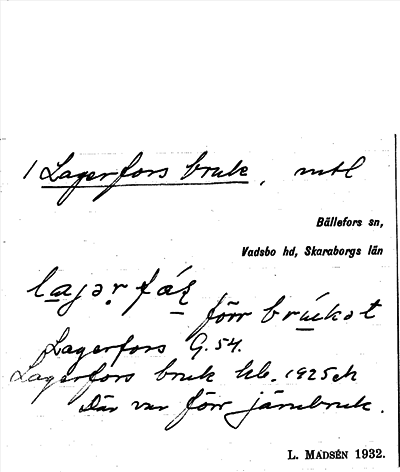 1 Lagerfors bruk, mtl
Bällefors sn,
Vadsbo hd, Skaraborgs län
lagər fás
förr brúkət
Lagerfors G. 54.
Lagerfors bruk hlb. 1925
Där var förr järnbruk.
L. MADSÉN 1932.